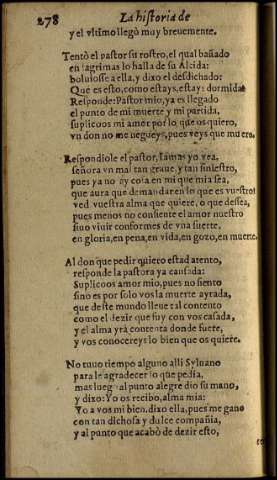 278 La historia de
y el vltimo llegò muy breuemente.
Tentò el pastor su rostro, el qual bañado
en lagrimas lo halla de su Alcida:
boluiosse a ella, y dixo el desdichado:
Que es esto, como estays, estay: dormida
Responde: Pastor mio, ya es llegado
el punto de mi muerte y mi partida,
suplicoos mi amor por lo que os quiero,
vn don no me negueys, pues veys que muero.
Respondiole el pastor, Iamas yo vea,
señora vn mal tan graue, y tan siniestro,
pues ya no ay cosa en mi que mia sea,
que aura que demandaren lo que es vuestro?
ved vuestra alma que quiere, o que dessea,
pues menos no consiente el amor nuestro
sino viuir conformes de vna suerte,
en gloria, en pena, en vida, en gozo, en muerte.
Al don que pedir quiero estad atento,
responde la pastora ya cansada:
Suplicoos amor mio, pues no siento
sino es por solo vos la muerte ayrada,
que deste mundo lleue tal contento
como el dezir que fuy con vos casada,
y el alma yrà contenta donde fuere,
y vos conocereys lo bien que os quiere.
No tuuo tiempo alguno alli Syluano
para le agradecer lo que pedia,
mas luego al punto alegre dio su mano,
y dixo: Yo os recibo, alma mia:
Yo a vos mi bien, dixo ella, pues me gano
con tan dichosa y dulce compañia,
y al punto que acabò de dezir esto,